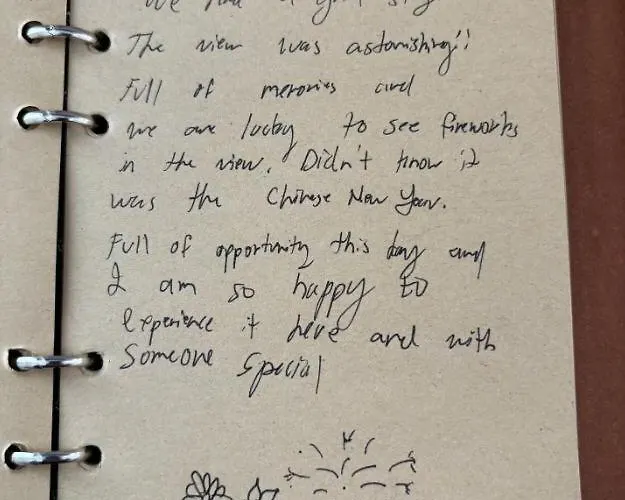 We had a
The view was astonishing!!
Full of memories and
we are lucky to see fireworks
in the view. Didn't know it
was the Chinese New Year.
Full of opportunity this day and
I am so happy to
experience it here and with
someone special